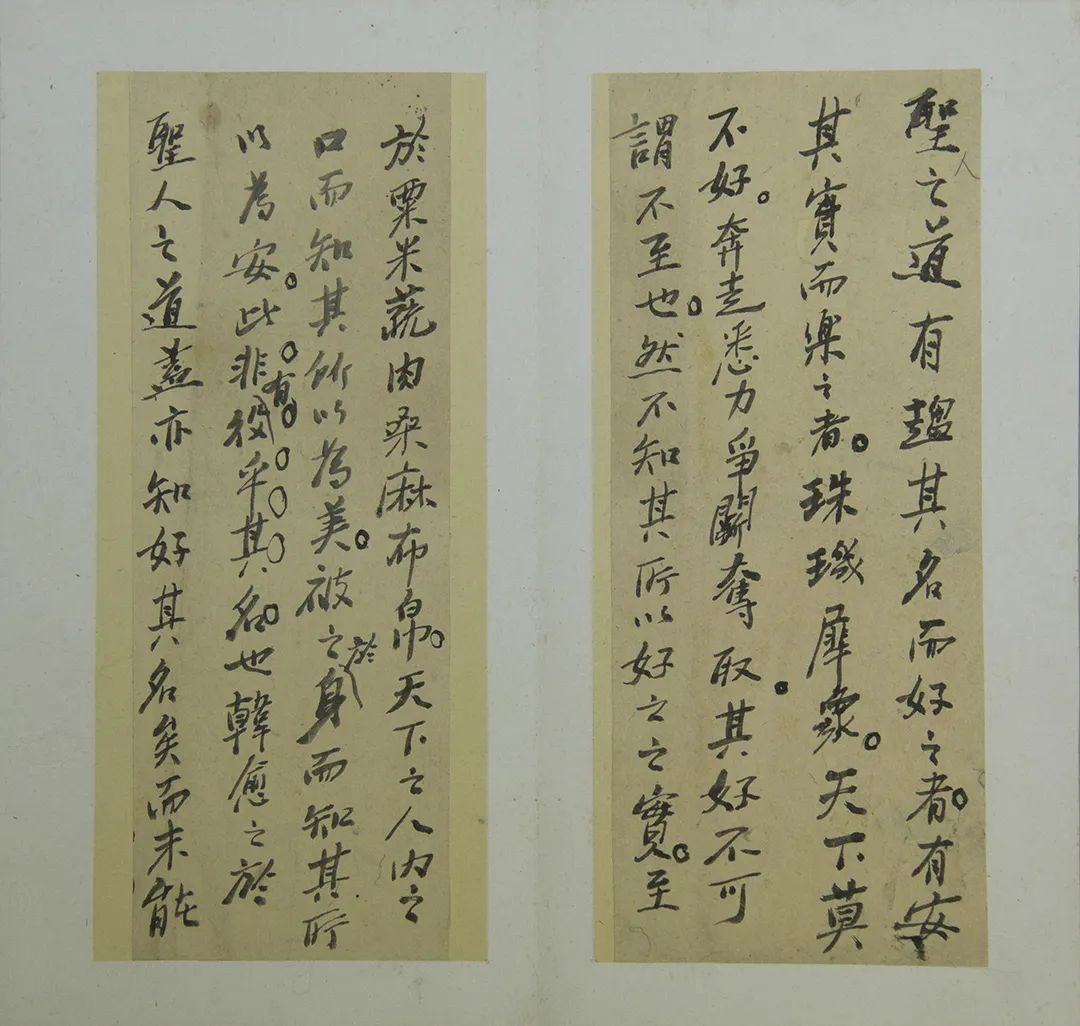 聖人之道有趨其名而好之者有安
其實而樂之者珠璣犀象天下莫
不好奔走悉力爭鬬奪取其好不可
謂不至也然不知其所以好之之實至
於粟米蔬肉桑麻布帛天下之人內之
口而知其所以為美被之於身而知其所
以為安此非有役乎其名也韓愈之於
聖人之道蓋亦知好其名矣而未能